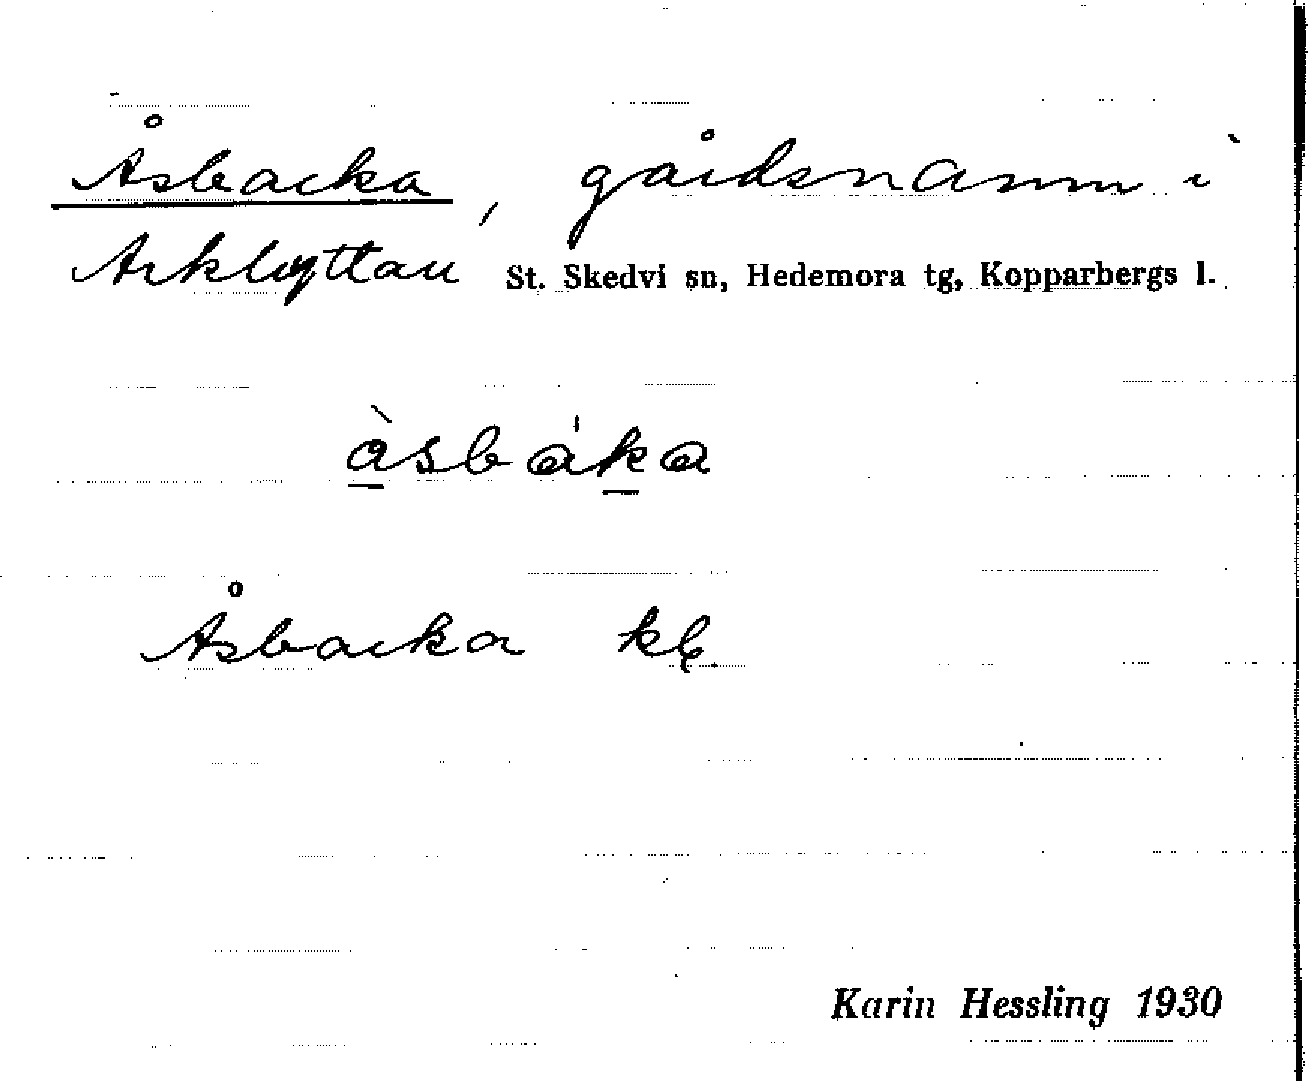 Åsbacka, gårdsnamn i
Arkhyttan St. Skedvi sn, Hedemora tg, Kopparbergs l.
àsbáka
Åsbacka kb.
Karin Hessling 1930